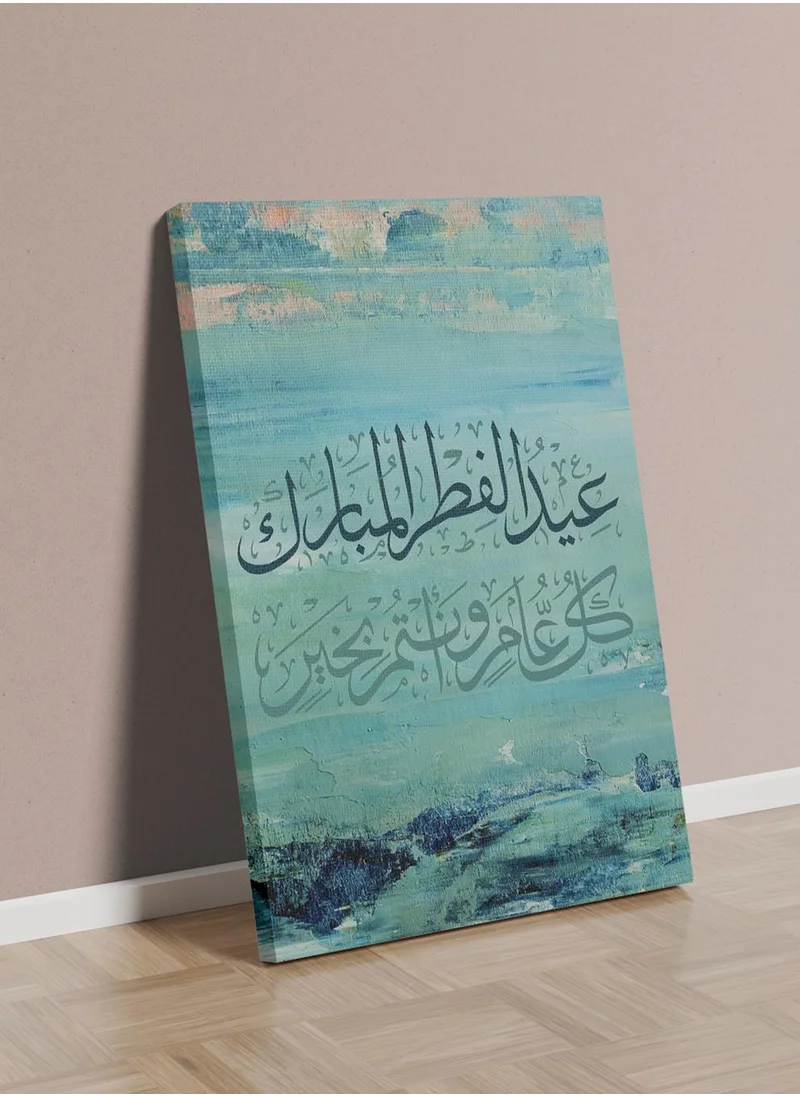 عِيدُ الفِطرِ المُبَارَك
كُلُّ عَامٍ وَأَنتُم بِخَيرٍ